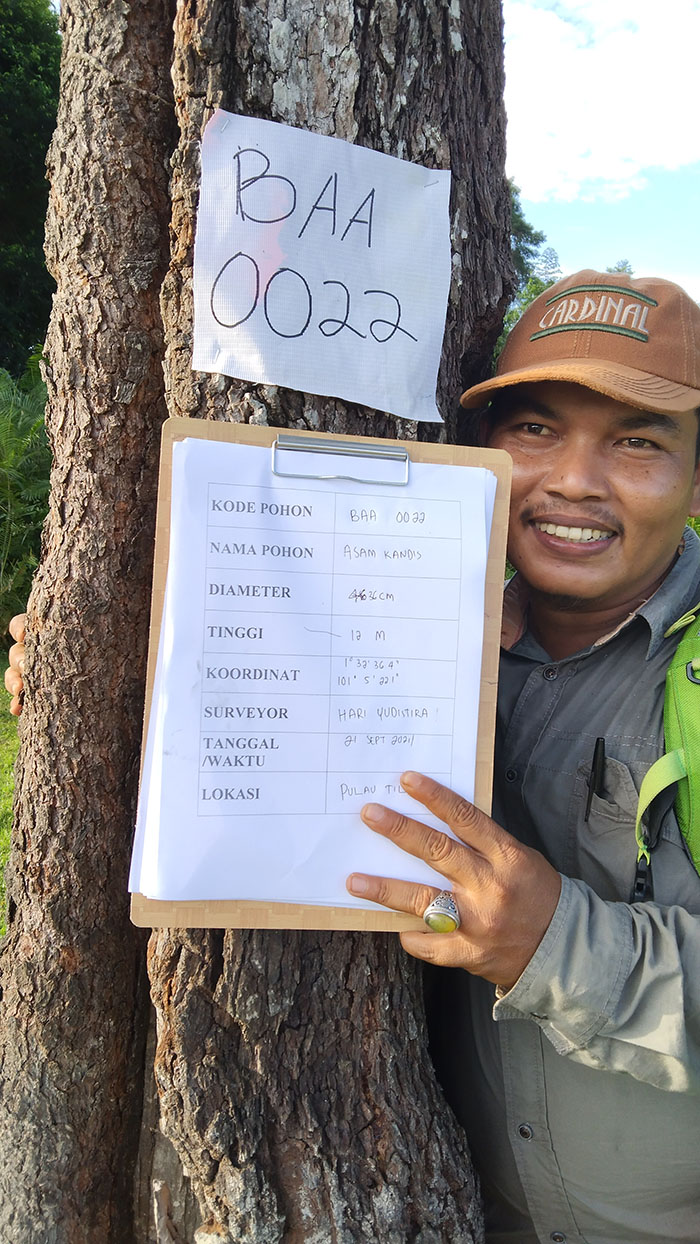 BAA
0022
CARDINAL
KODE POHON BAA 0022
NAMA POHON ASAM KANDIS
DIAMETER 36 CM
TINGGI 12 M
KOORDINAT 1° 32' 36.4"
101° 5' 221"
SURVEYOR HARI YUDISTIRA
TANGGAL 21 SEPT 2021/
/WAKTU
LOKASI PULAU